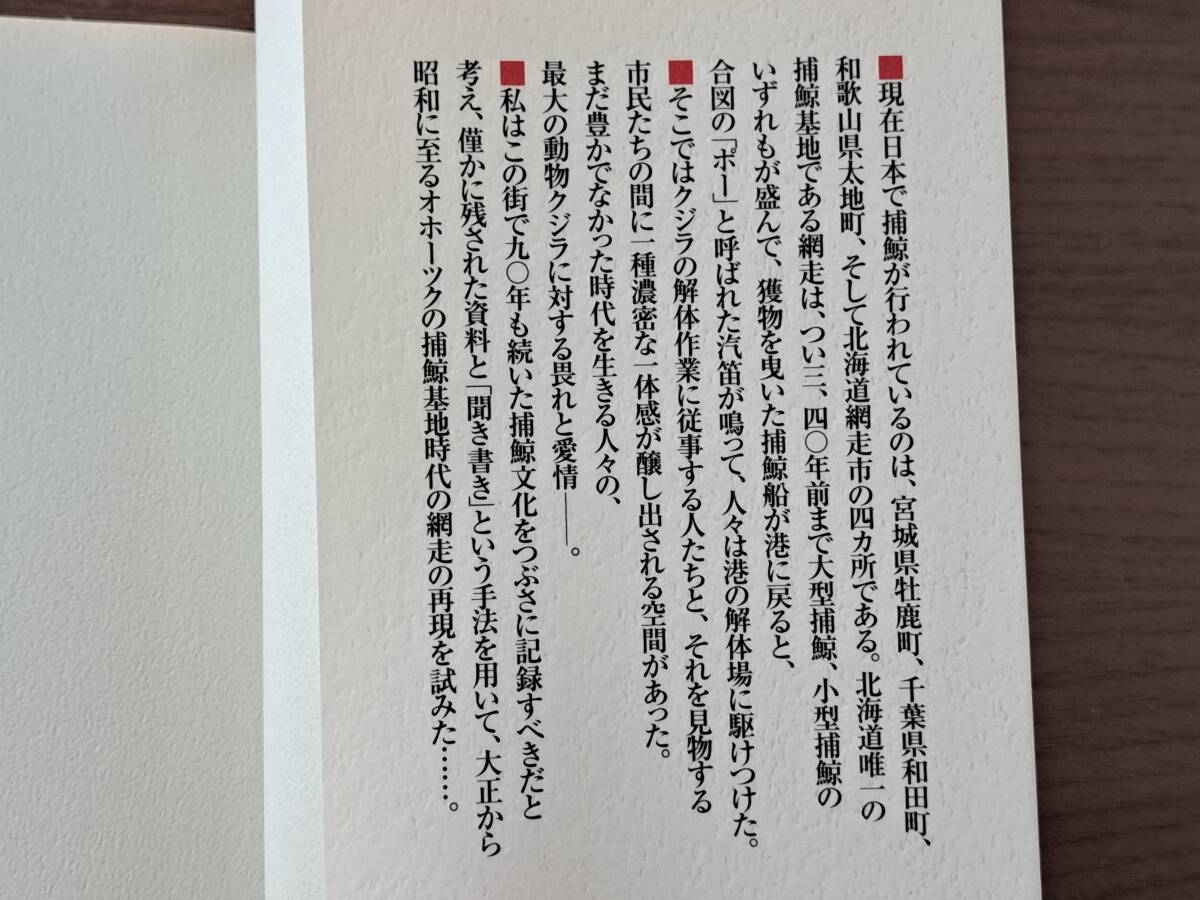 ■現在日本で捕鯨が行われているのは、宮城県牡鹿町、千葉県和田町、
和歌山県太地町、そして北海道網走市の四カ所である。北海道唯一の
捕鯨基地である網走は、つい三、四〇年前まで大型捕鯨、小型捕鯨の
いずれもが盛んで、獲物を曳いた捕鯨船が港に戻ると、
合図の「ポー」と呼ばれた汽笛が鳴って、人々は港の解体場に駆けつけた。
■そこではクジラの解体作業に従事する人たちと、それを見物する
市民たちの間に一種濃密な一体感が醸し出される空間があった。
まだ豊かでなかった時代を生きる人々の、
最大の動物クジラに対する畏れと愛情――。
■私はこの街で九〇年も続いた捕鯨文化をつぶさに記録すべきだと
考え、僅かに残された資料と「聞き書き」という手法を用いて、大正から
昭和に至るオホーツクの捕鯨基地時代の網走の再現を試みた……。